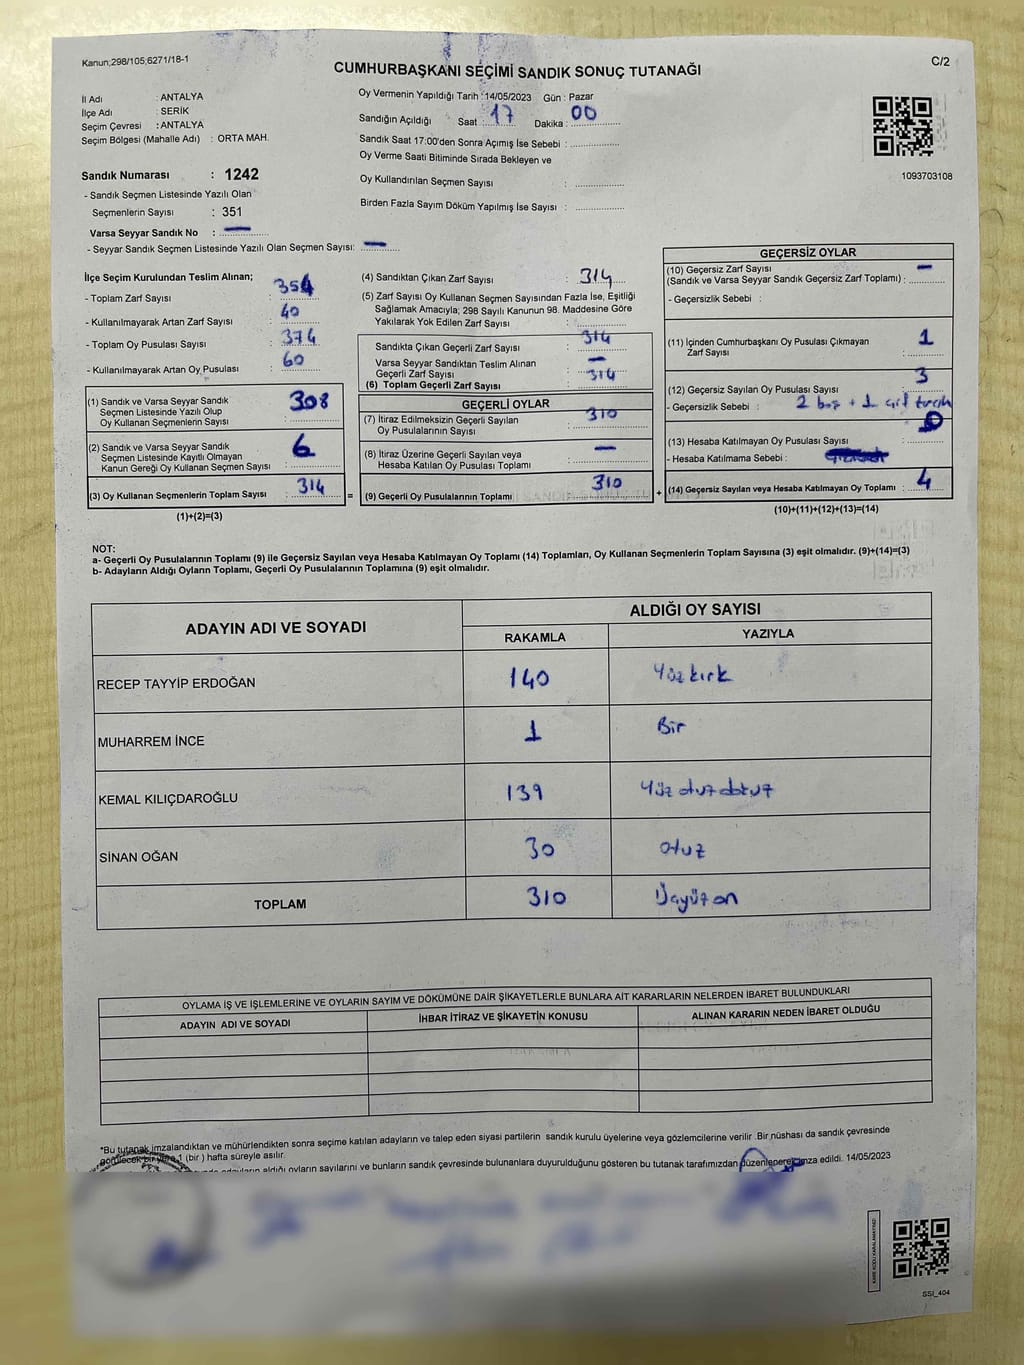 Kanun;298/105;6271/18-1
C/2
CUMHURBAŞKANI SEÇİMİ SANDIK SONUÇ TUTANAĞI
İl Adı : ANTALYA
İlçe Adı : SERİK
Seçim Çevresi : ANTALYA
Seçim Bölgesi (Mahalle Adı) : ORTA MAH.
Oy Vermenin Yapıldığı Tarih :14/05/2023 Gün : Pazar
Sandığın Açıldığı Saat : 17 Dakika : 00
Sandık Saat 17:00'den Sonra Açımış İse Sebebi :
Oy Verme Saati Bitiminde Sırada Bekleyen ve
Oy Kullandırılan Seçmen Sayısı :
Birden Fazla Sayım Döküm Yapılmış İse Sayısı :
1093703108
Sandık Numarası : 1242
- Sandık Seçmen Listesinde Yazılı Olan
Seçmenlerin Sayısı : 351
Varsa Seyyar Sandık No : —
- Seyyar Sandık Seçmen Listesinde Yazılı Olan Seçmen Sayısı: —
İlçe Seçim Kurulundan Teslim Alınan;
- Toplam Zarf Sayısı : 354
- Kullanılmayarak Artan Zarf Sayısı : 40
- Toplam Oy Pusulası Sayısı : 374
- Kullanılmayarak Artan Oy Pusulası : 60
(1) Sandık ve Varsa Seyyar Sandık
Seçmen Listesinde Yazılı Olup
Oy Kullanan Seçmenlerin Sayısı : 308
(2) Sandık ve Varsa Seyyar Sandık
Seçmen Listesinde Kayıtlı Olmayan
Kanun Gereği Oy Kullanan Seçmen Sayısı : 6
(3) Oy Kullanan Seçmenlerin Toplam Sayısı : 314
(1)+(2)=(3)
=
(4) Sandıktan Çıkan Zarf Sayısı : 314
(5) Zarf Sayısı Oy Kullanan Seçmen Sayısından Fazla İse, Eşitliği
Sağlamak Amacıyla; 298 Sayılı Kanunun 98. Maddesine Göre
Yakılarak Yok Edilen Zarf Sayısı :
Sandıkta Çıkan Geçerli Zarf Sayısı : 314
Varsa Seyyar Sandıktan Teslim Alınan
Geçerli Zarf Sayısı : —
(6) Toplam Geçerli Zarf Sayısı : 314
GEÇERLİ OYLAR
(7) İtiraz Edilmeksizin Geçerli Sayılan
Oy Pusulalarının Sayısı : 310
(8) İtiraz Üzerine Geçerli Sayılan veya
Hesaba Katılan Oy Pusulası Toplamı : —
(9) Geçerli Oy Pusulalarının Toplamı : 310
+
GEÇERSİZ OYLAR
(10) Geçersiz Zarf Sayısı
(Sandık ve Varsa Seyyar Sandık Geçersiz Zarf Toplamı) : —
- Geçersizlik Sebebi :
(11) İçinden Cumhurbaşkanı Oy Pusulası Çıkmayan
Zarf Sayısı : 1
(12) Geçersiz Sayılan Oy Pusulası Sayısı : 3
- Geçersizlik Sebebi : 2 boş + 1 çift tercih
(13) Hesaba Katılmayan Oy Pusulası Sayısı : 0
- Hesaba Katılmama Sebebi :
(14) Geçersiz Sayılan veya Hesaba Katılmayan Oy Toplamı : 4
(10)+(11)+(12)+(13)=(14)
NOT:
a- Geçerli Oy Pusulalarının Toplamı (9) ile Geçersiz Sayılan veya Hesaba Katılmayan Oy Toplamı (14) Toplamları, Oy Kullanan Seçmenlerin Toplam Sayısına (3) eşit olmalıdır. (9)+(14)=(3)
b- Adayların Aldığı Oyların Toplamı, Geçerli Oy Pusulalarının Toplamına (9) eşit olmalıdır.
ADAYIN ADI VE SOYADI ALDIĞI OY SAYISI
RAKAMLA YAZIYLA
RECEP TAYYİP ERDOĞAN 140 Yüzkırk
MUHARREM İNCE 1 Bir
KEMAL KILIÇDAROĞLU 139 Yüz otuz dokuz
SİNAN OĞAN 30 otuz
TOPLAM 310 Üçyüz on
OYLAMA İŞ VE İŞLEMLERİNE VE OYLARIN SAYIM VE DÖKÜMÜNE DAİR ŞİKAYETLERLE BUNLARA AİT KARARLARIN NELERDEN İBARET BULUNDUKLARI
ADAYIN ADI VE SOYADI İHBAR İTİRAZ VE ŞİKAYETİN KONUSU ALINAN KARARIN NEDEN İBARET OLDUĞU
*Bu tutanak imzalandıktan ve mühürlendikten sonra seçime katılan adayların ve talep eden siyasi partilerin sandık kurulu üyelerine veya gözlemcilerine verilir .Bir nüshası da sandık çevresinde
görülecek bir yere 1 (bir ) hafta süreyle asılır.
adayların aldığı oyların sayılarını ve bunların sandık çevresinde bulunanlara duyurulduğunu gösteren bu tutanak tarafımızdan düzenlenerek imza edildi. 14/05/2023
KARE KODU KARALAMAYINIZ!
SSI_404